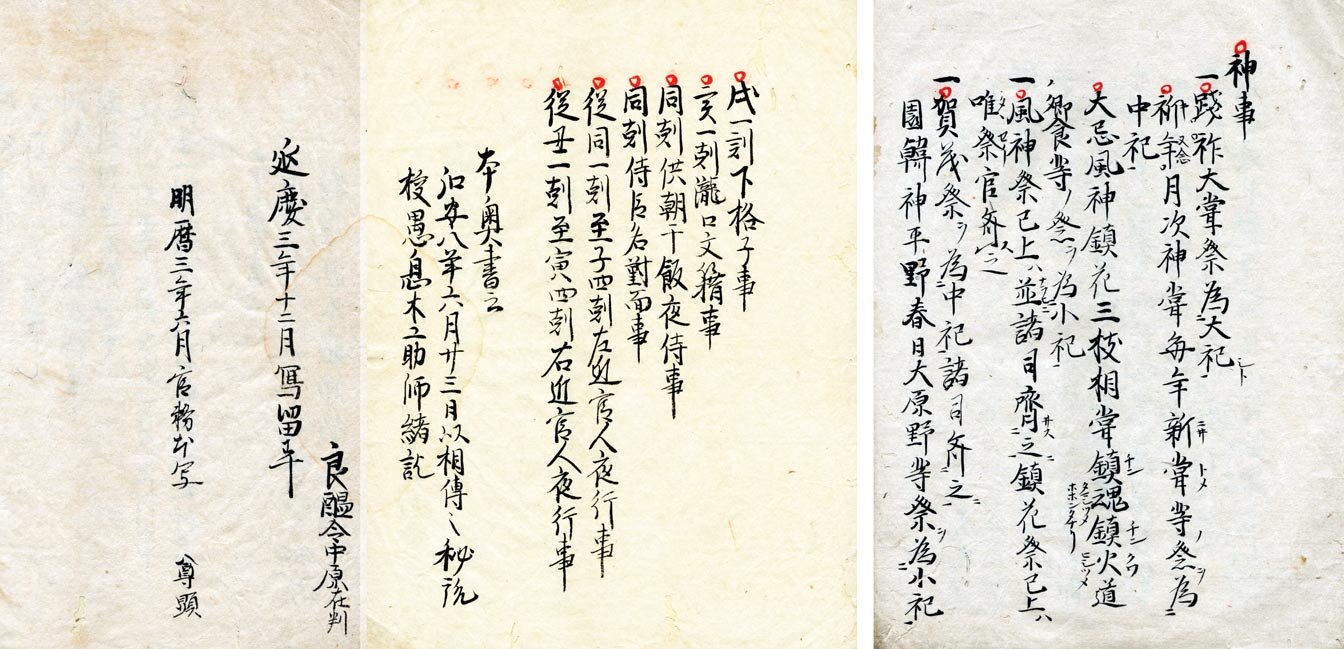 神事
一踐祚大甞祭為大祀
祈年月次神甞每年新甞等祭為
中祀
大忌風神鎮花三枝相甞鎮魂鎮火道
饗等ノ祭ヲ為小祀
一風神祭已上ハ並諸司齊之鎮花祭已上ハ
唯祭官斎之
一賀茂祭ヲ為中祀諸司斎之
園韓神平野春日大原野等祭ヲ為小祀
戌一刻下格子事
亥一剋瀧口文籍事
同剋供朝干飯夜侍事
同剋侍臣名對面事
從同一剋至子四剋左近官人夜行事
從丑一剋至寅四剋右近官人夜行事
本奥書云
弘安八年六月廿三日以相傳之秘説
授愚息木工助師緒訖
良醞令中原在判
延慶三年十二月寫留畢
明暦三年六月官務本写
尊顕